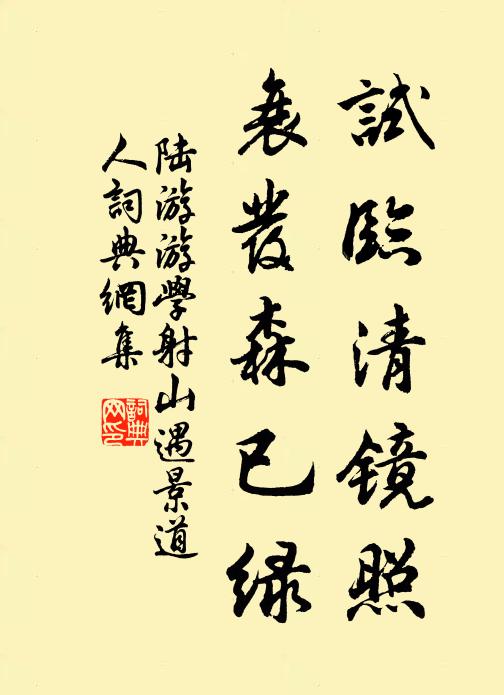 試臨清鏡照
衰發森已綠
陆游游學射山遇景道
人詞典網集
詞典網印